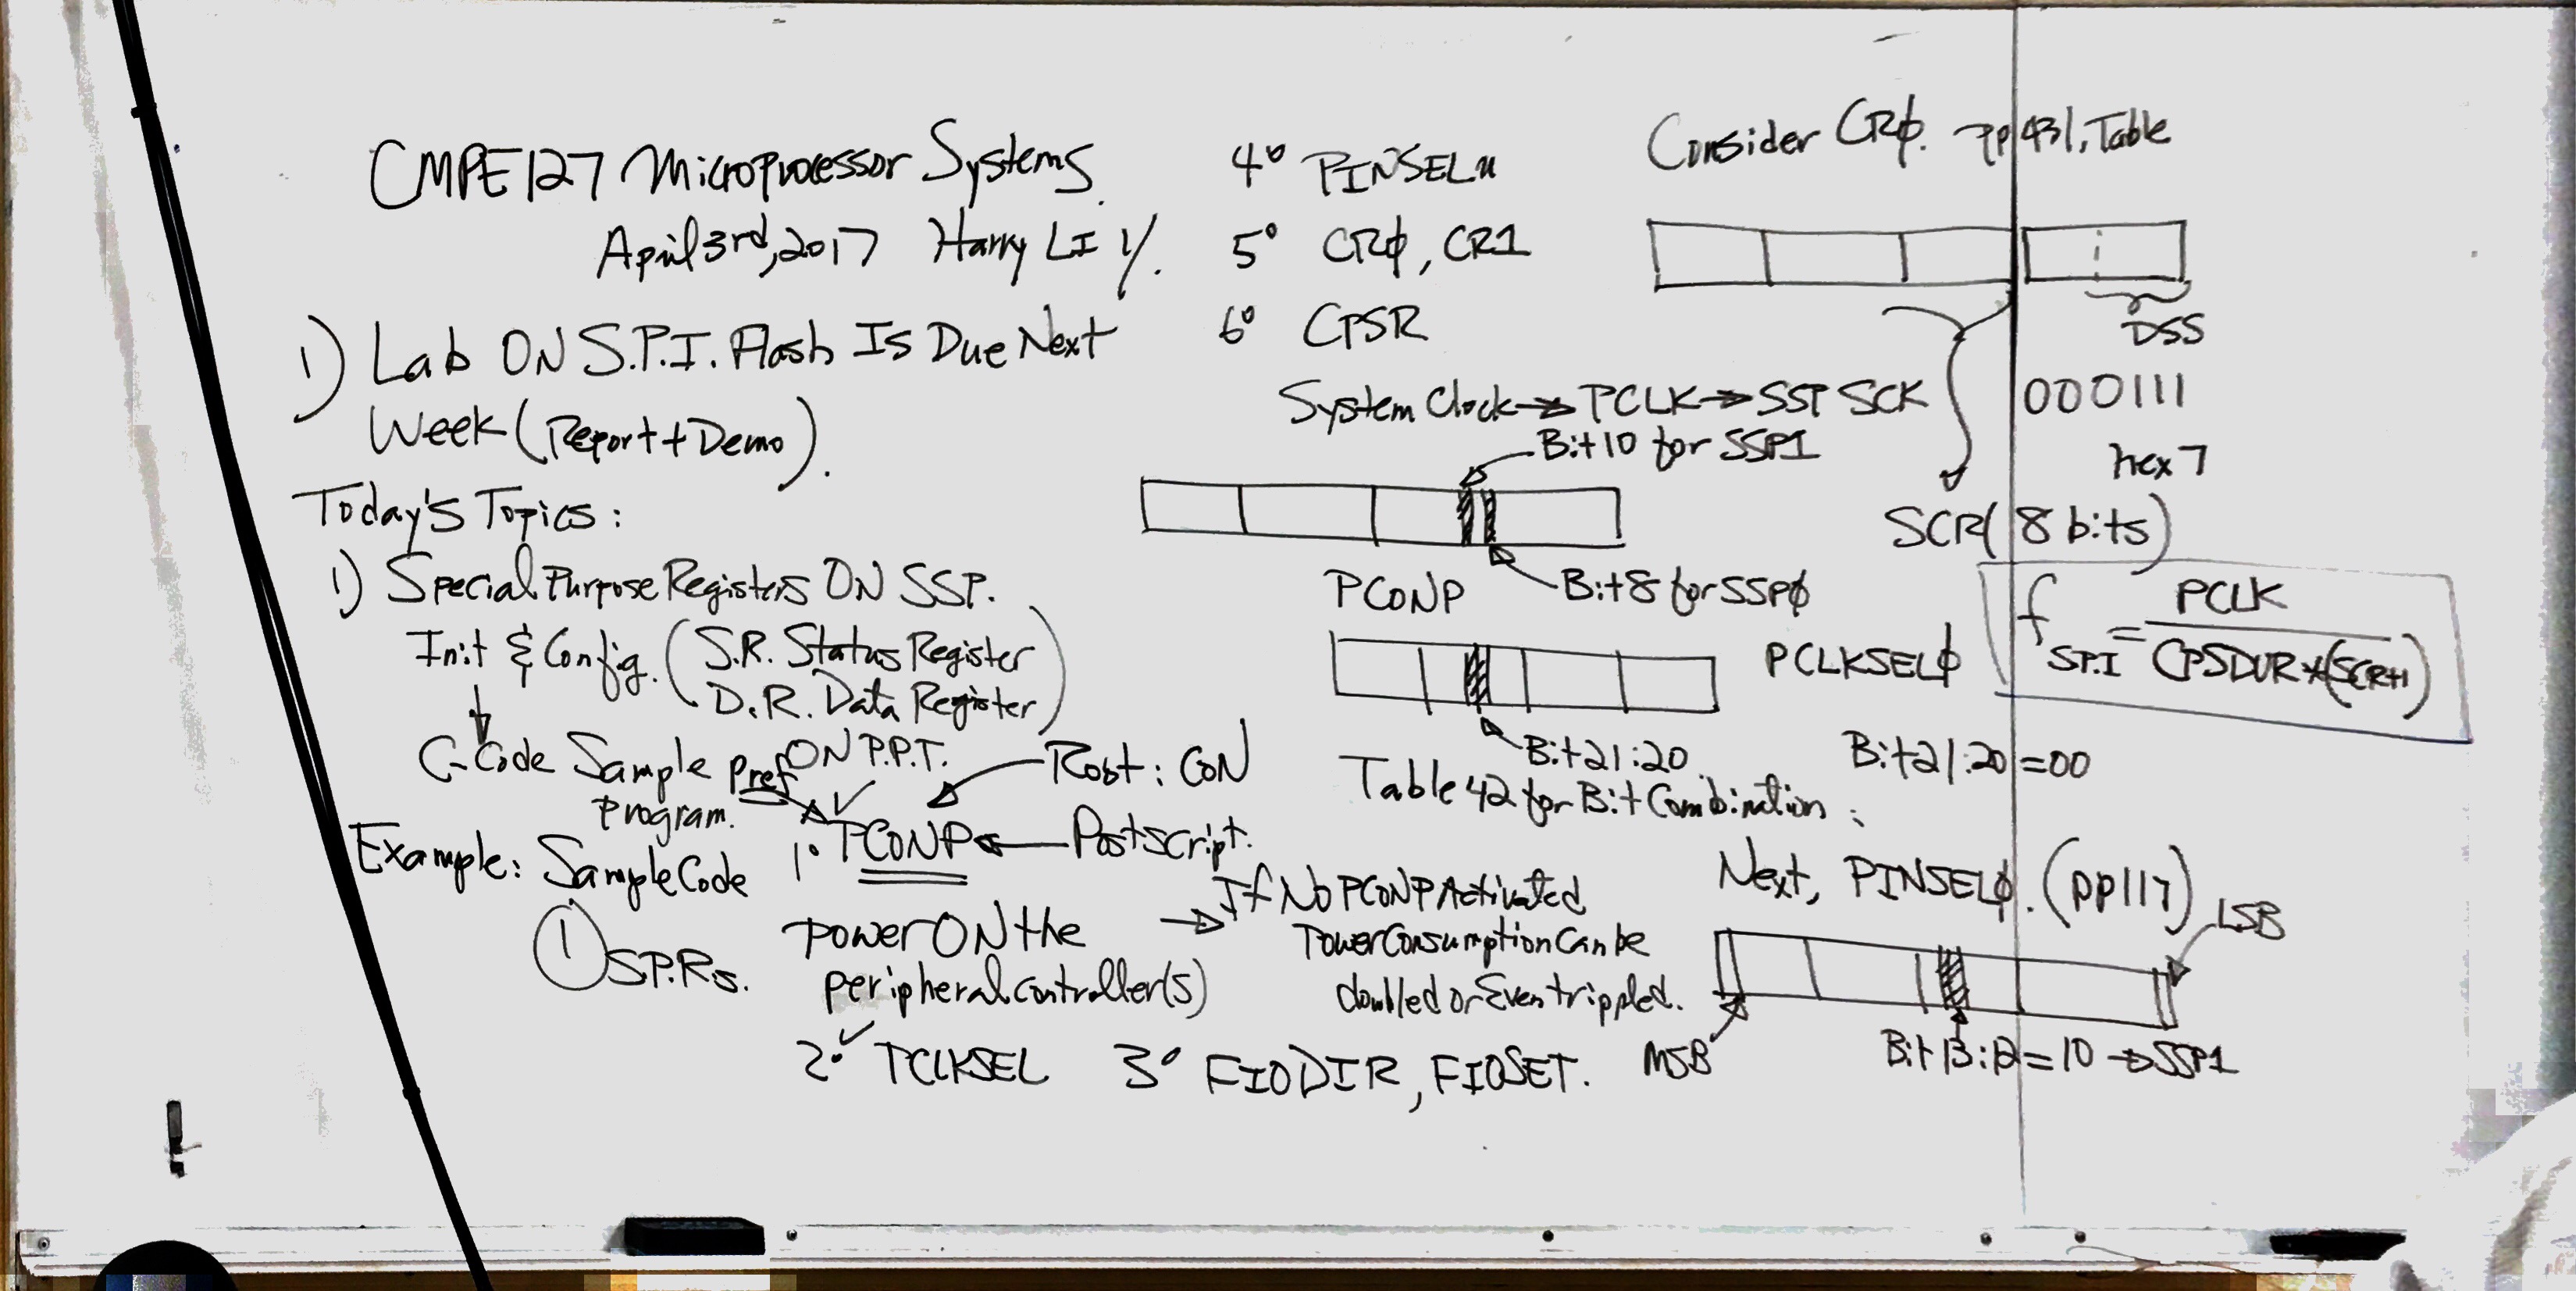 CMPE127 Microprocessor Systems.
April 3rd, 2017 Harry LI 1/.
1) Lab ON S.P.I. Flash Is Due Next
Week (Report+Demo).
Today's Topics:
1) Special Purpose Registers ON SSP.
Init & Config. (S.R. Status Register
D.R. Data Register)
C-Code Sample ON P.P.T.
program.
Example: Sample Code
① S.P.Rs.
Pref
Root: CON
1° PCONP
Postscript.
power ON the
peripheral controller(s)
→ If No PCONP Activated
Power Consumption Can be
doubled or Even trippled.
2° PCLKSEL 3° FIODIR, FIOSET.
4° PINSELn
5° CRφ, CR1
6° CPSR
System Clock → PCLK → SSP SCK
Bit 10 for SSP1
PCONP
Bit 8 for SSPφ
PCLKSELφ
Bit 21:20
Table 42 for Bit Combination:
Bit 21:20 = 00
Consider CRφ. pp 431, Table
DSS
000111
hex 7
SCR (8 bits)
f SPI = PCLK / CPSDVR × (SCR+1)
Next, PINSELφ. (pp117)
LSB
MSB
Bit 13:12 = 10 → SSP1